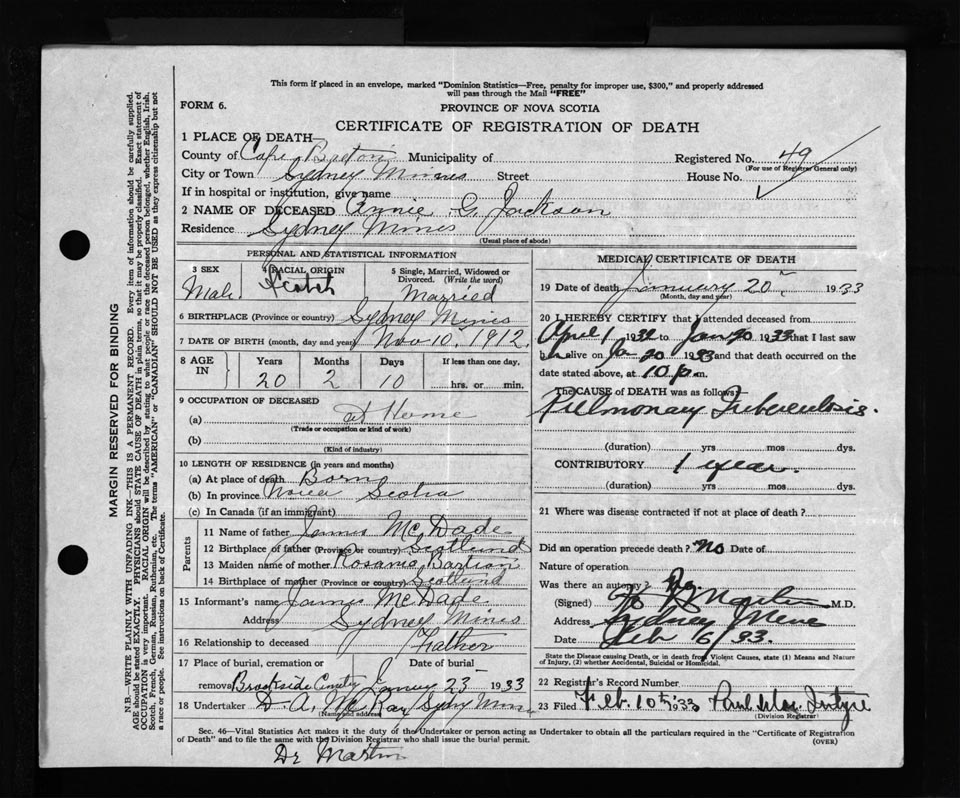 This form if placed in an envelope, marked "Dominion Statistics—Free, penalty for improper use, $300," and properly addressed
will pass through the Mail "FREE"
FORM 6.
PROVINCE OF NOVA SCOTIA
CERTIFICATE OF REGISTRATION OF DEATH
1 PLACE OF DEATH—
County of Cape Breton Municipality of Registered No. 49
(For use of Registrar General only)
City or Town Sydney Mines Street House No.
If in hospital or institution, give name
2 NAME OF DECEASED Annie G. Jackson
Residence Sydney Mines
(Usual place of abode)
PERSONAL AND STATISTICAL INFORMATION
3 SEX 4 RACIAL ORIGIN 5 Single, Married, Widowed or Divorced. (Write the word)
Male Scotch Married
6 BIRTHPLACE (Province or country) Sydney Mines
7 DATE OF BIRTH (month, day and year) Nov 10. 1912.
8 AGE IN Years Months Days If less than one day,
20 2 10 hrs. or min.
9 OCCUPATION OF DECEASED
(a) at Home
(Trade or occupation or kind of work)
(b)
(Kind of industry)
10 LENGTH OF RESIDENCE (in years and months)
(a) At place of death Born
(b) In province Nova Scotia
(c) In Canada (if an immigrant)
Parents
11 Name of father James McDade
12 Birthplace of father (Province or country) Scotland
13 Maiden name of mother
14 Birthplace of mother (Province or country) Scotland
15 Informant's name James McDade
Address Sydney Mines
16 Relationship to deceased Father
17 Place of burial, cremation or removal Brookside Cemetery Date of burial— 23 1933
18 Undertaker D. A. McKay Sydney Mines
(Name and address)
MEDICAL CERTIFICATE OF DEATH
19 Date of death January 20 1933
(Month, day and year)
20 I HEREBY CERTIFY that I attended deceased from
April 1 1932 to Jan 20 1933 that I last saw
h alive on Jan 20 1933 and that death occurred on
date stated above, at 10 p.m.
The CAUSE OF DEATH was as follows:—
Pulmonary Tuberculosis.
(duration) yrs mos dys.
CONTRIBUTORY 1 year.
(duration) yrs mos dys.
21 Where was disease contracted if not at place of death?
Did an operation precede death? No Date of
Nature of operation
Was there an autopsy? No
(Signed) M.D.
Address Sydney Mines
Date Feb 6/33.
State the Disease causing Death, or in death from Violent Causes, state (1) Means and Nature
of Injury, (2) whether Accidental, Suicidal or Homicidal.
22 Registrar's Record Number
23 Filed Feb. 10th 1933
(Division Registrar)
Sec. 46—Vital Statistics Act makes it the duty of the Undertaker or person acting as Undertaker to obtain all the particulars required in the "Certificate of Registration
of Death" and to file the same with the Division Registrar who shall issue the burial permit. (OVER)
Dr Martin
MARGIN RESERVED FOR BINDING
N.B.—WRITE PLAINLY WITH UNFADING INK—THIS IS A PERMANENT RECORD. Every item of information should be carefully supplied.
AGE should be stated EXACTLY. PHYSICIANS should STATE CAUSE OF DEATH in plain terms, so that it may be properly classified. Exact statement of
OCCUPATION is very important. RACIAL ORIGIN will be described by stating to what people or race the deceased person belonged, whether English, Irish,
Scotch, French, German, Russian, Ruthenian, etc. The terms "AMERICAN" or "CANADIAN" SHOULD NOT BE USED as they express citizenship but not
a race or people. See instructions on back of Certificate.